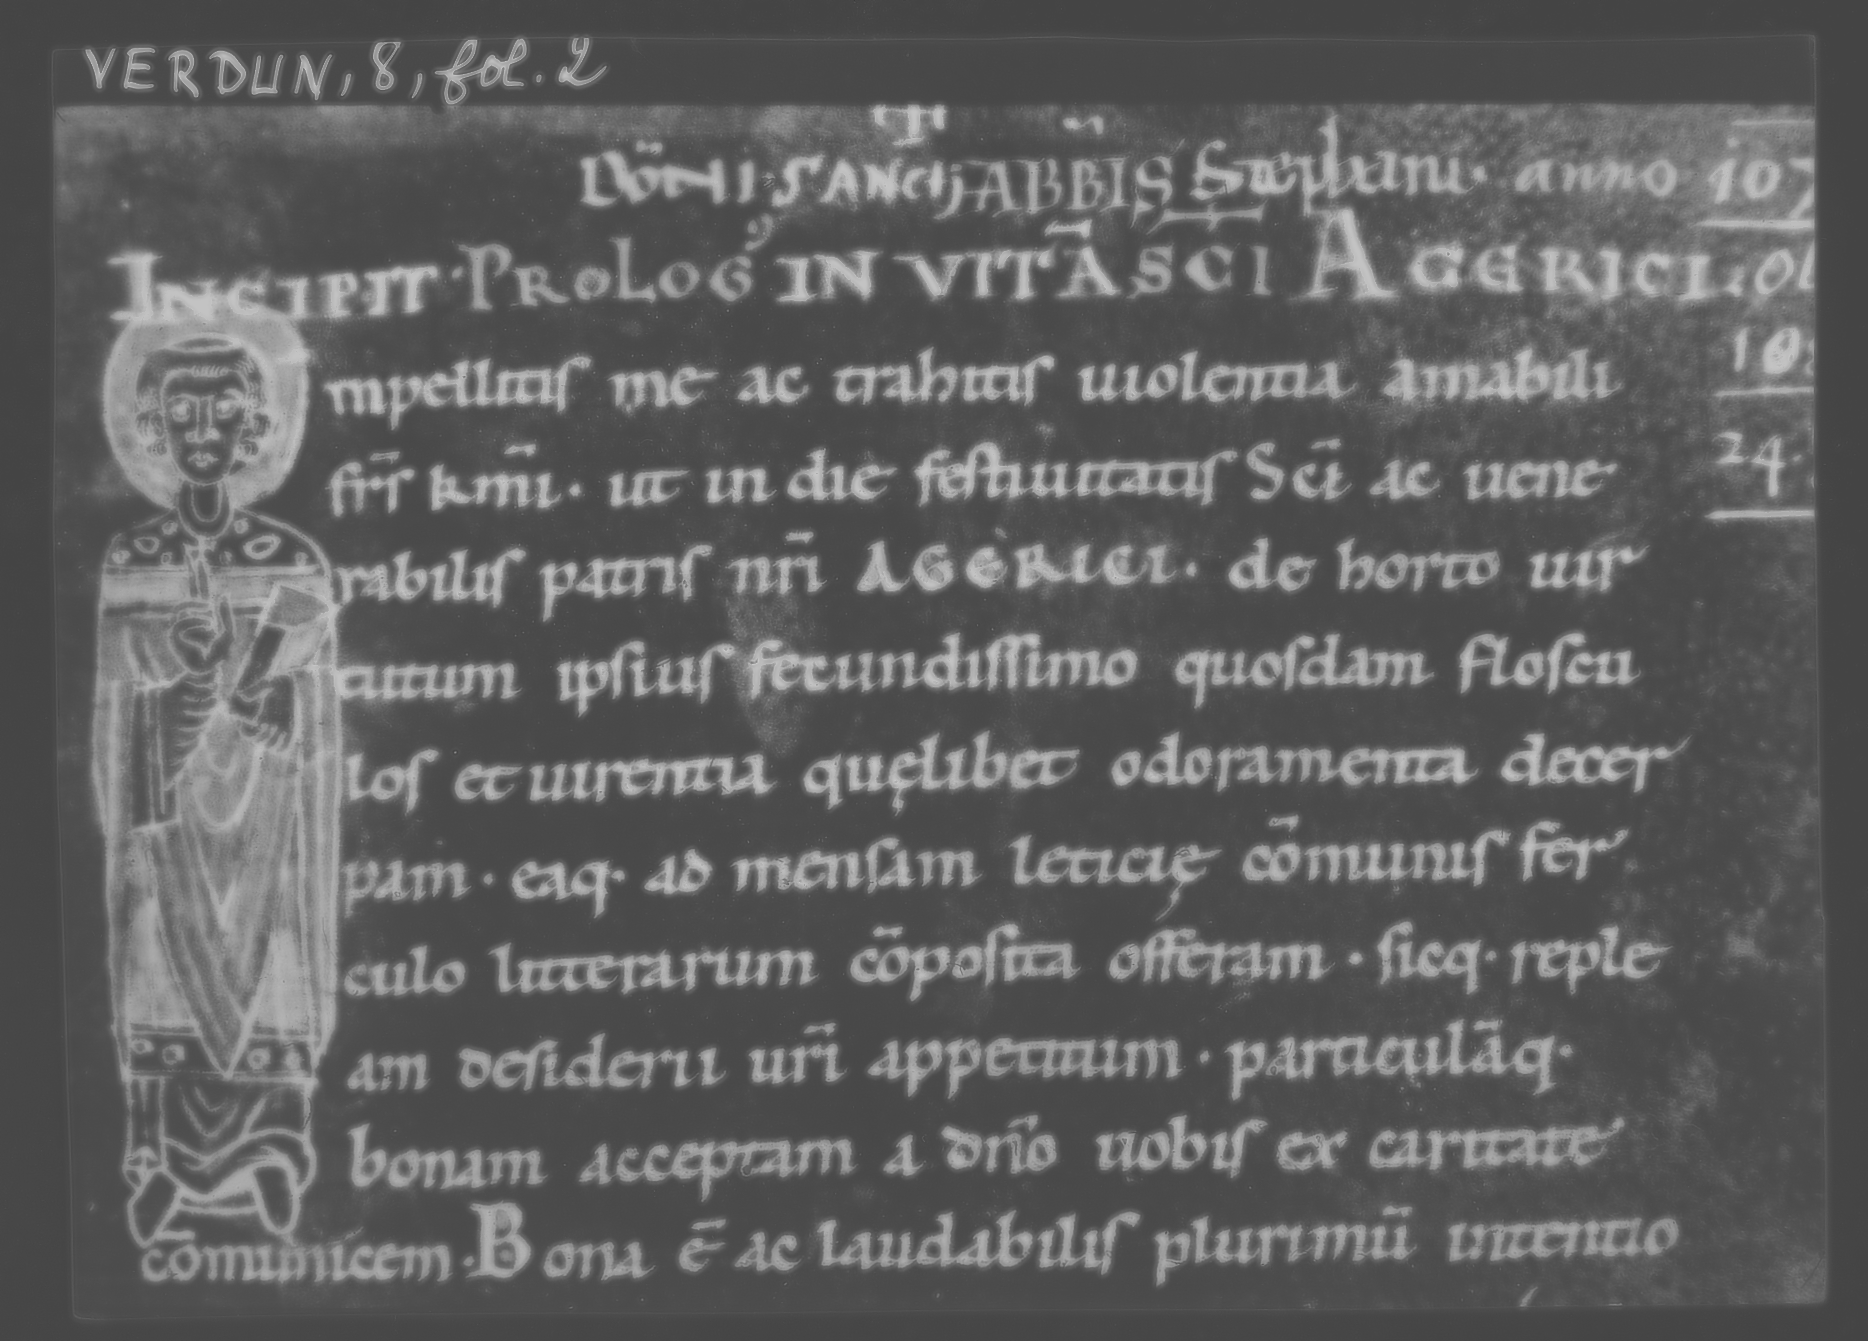 VERDUN, 8, fol. 2
SANCTI ABBIS Stephani · anno 107
INCIPIT · PROLOG᾽ IN VITĀ SCI AGERICI.
mpellitis me ac trahitis uiolentia amabili
fr̄s k̄mi · ut in die festiuitatis Sc̄i ac uene
rabilis patris nr̄i AGERICI · de horto uir
tutum ipsius fecundissimo quosdam floscu
los et uirentia quęlibet odoramenta decer
pam · eaq· ad mensam leticię cōmunis fer
culo litterarum cōposita offeram · sicq· reple
am desiderii ur̄i appetitum · particulāq·
bonam acceptam a dn̄o uobis ex caritate
cōmunicem · Bona ē ac laudabilis plurimū intentio
10
24·